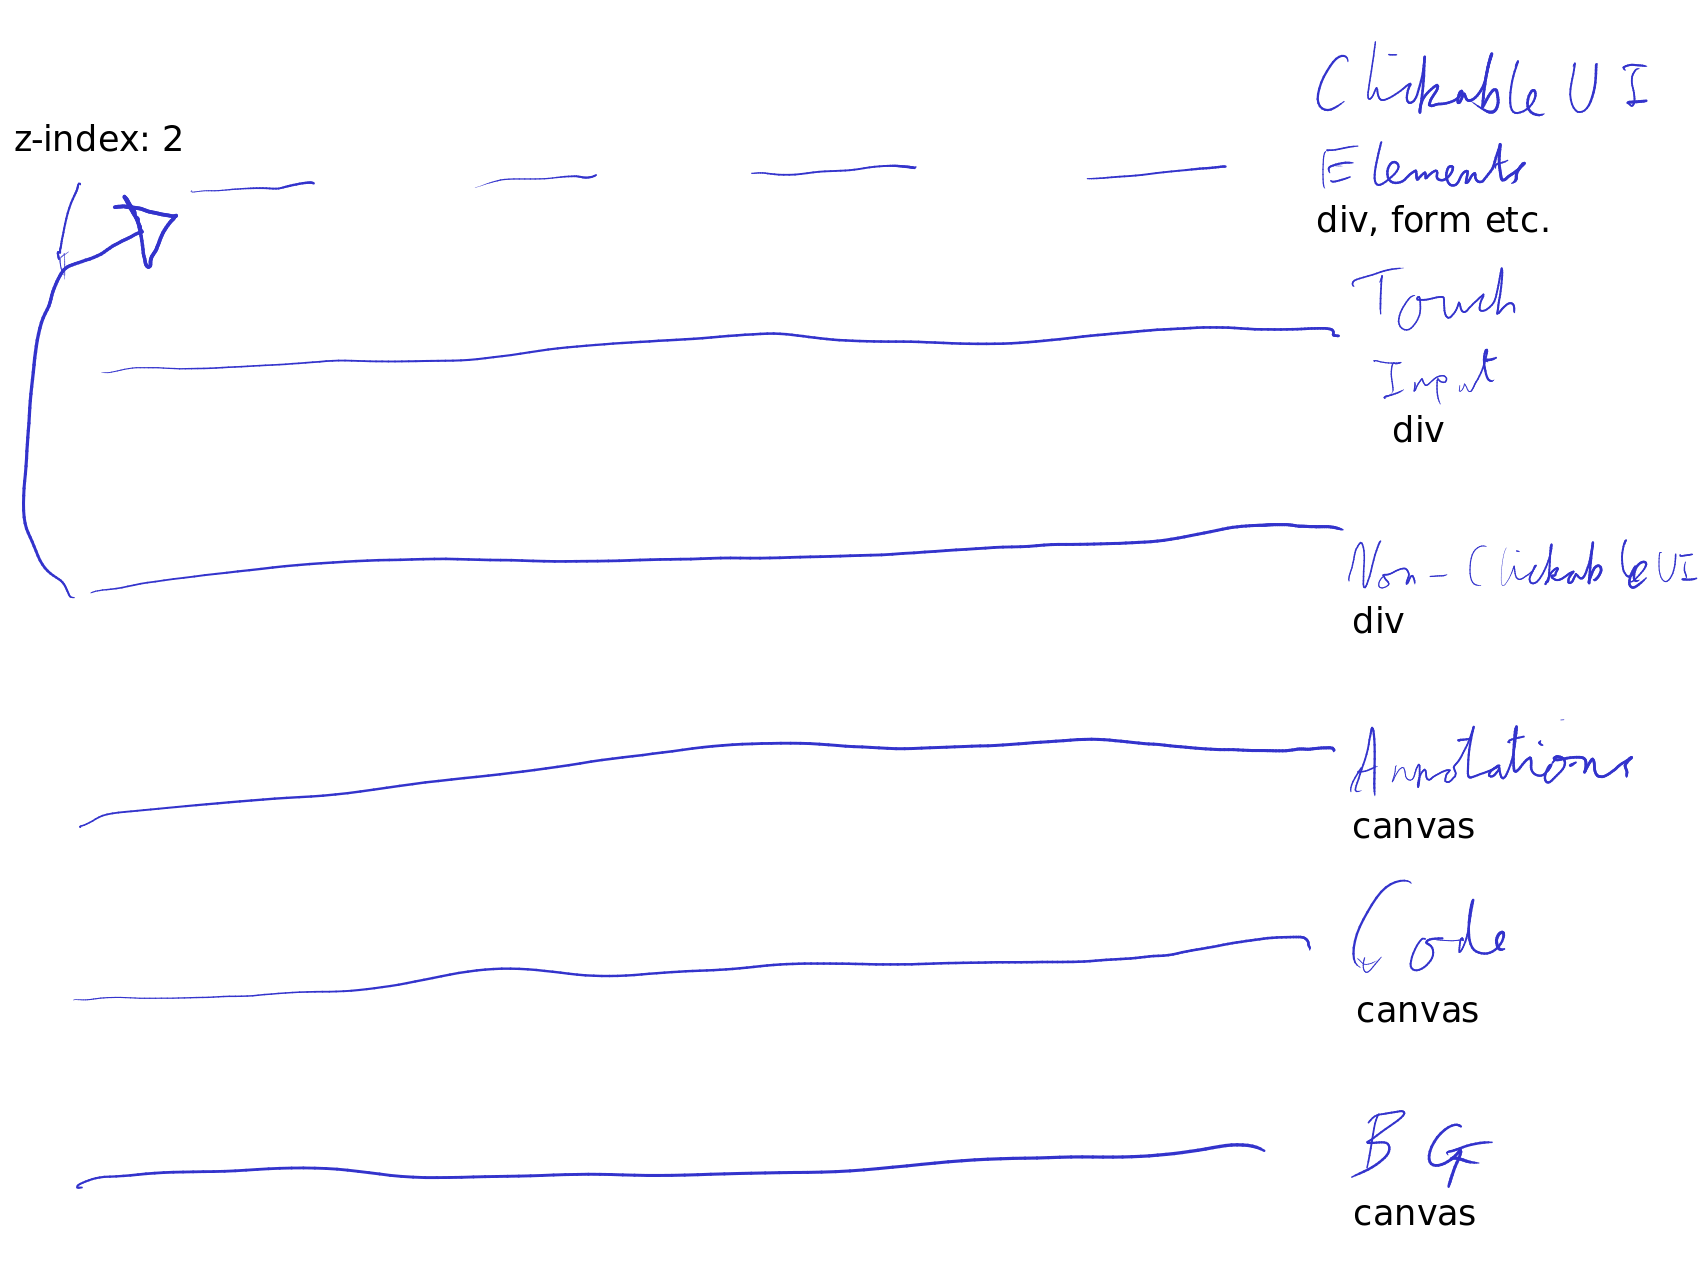 Clickable UI
z-index: 2
Elements
div, form etc.
Touch
Input
div
Non-Clickable UI
div
Annotations
canvas
Code
canvas
BG
canvas